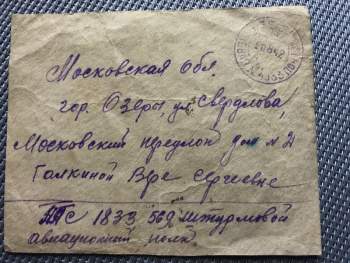 Московская обл.
гор. Озеры, ул. Свердлова,
Московский переулок дом № 21
Галкиной Вере Сергеевне
ППС 1833 569 Штурмовой
авиационный полк.